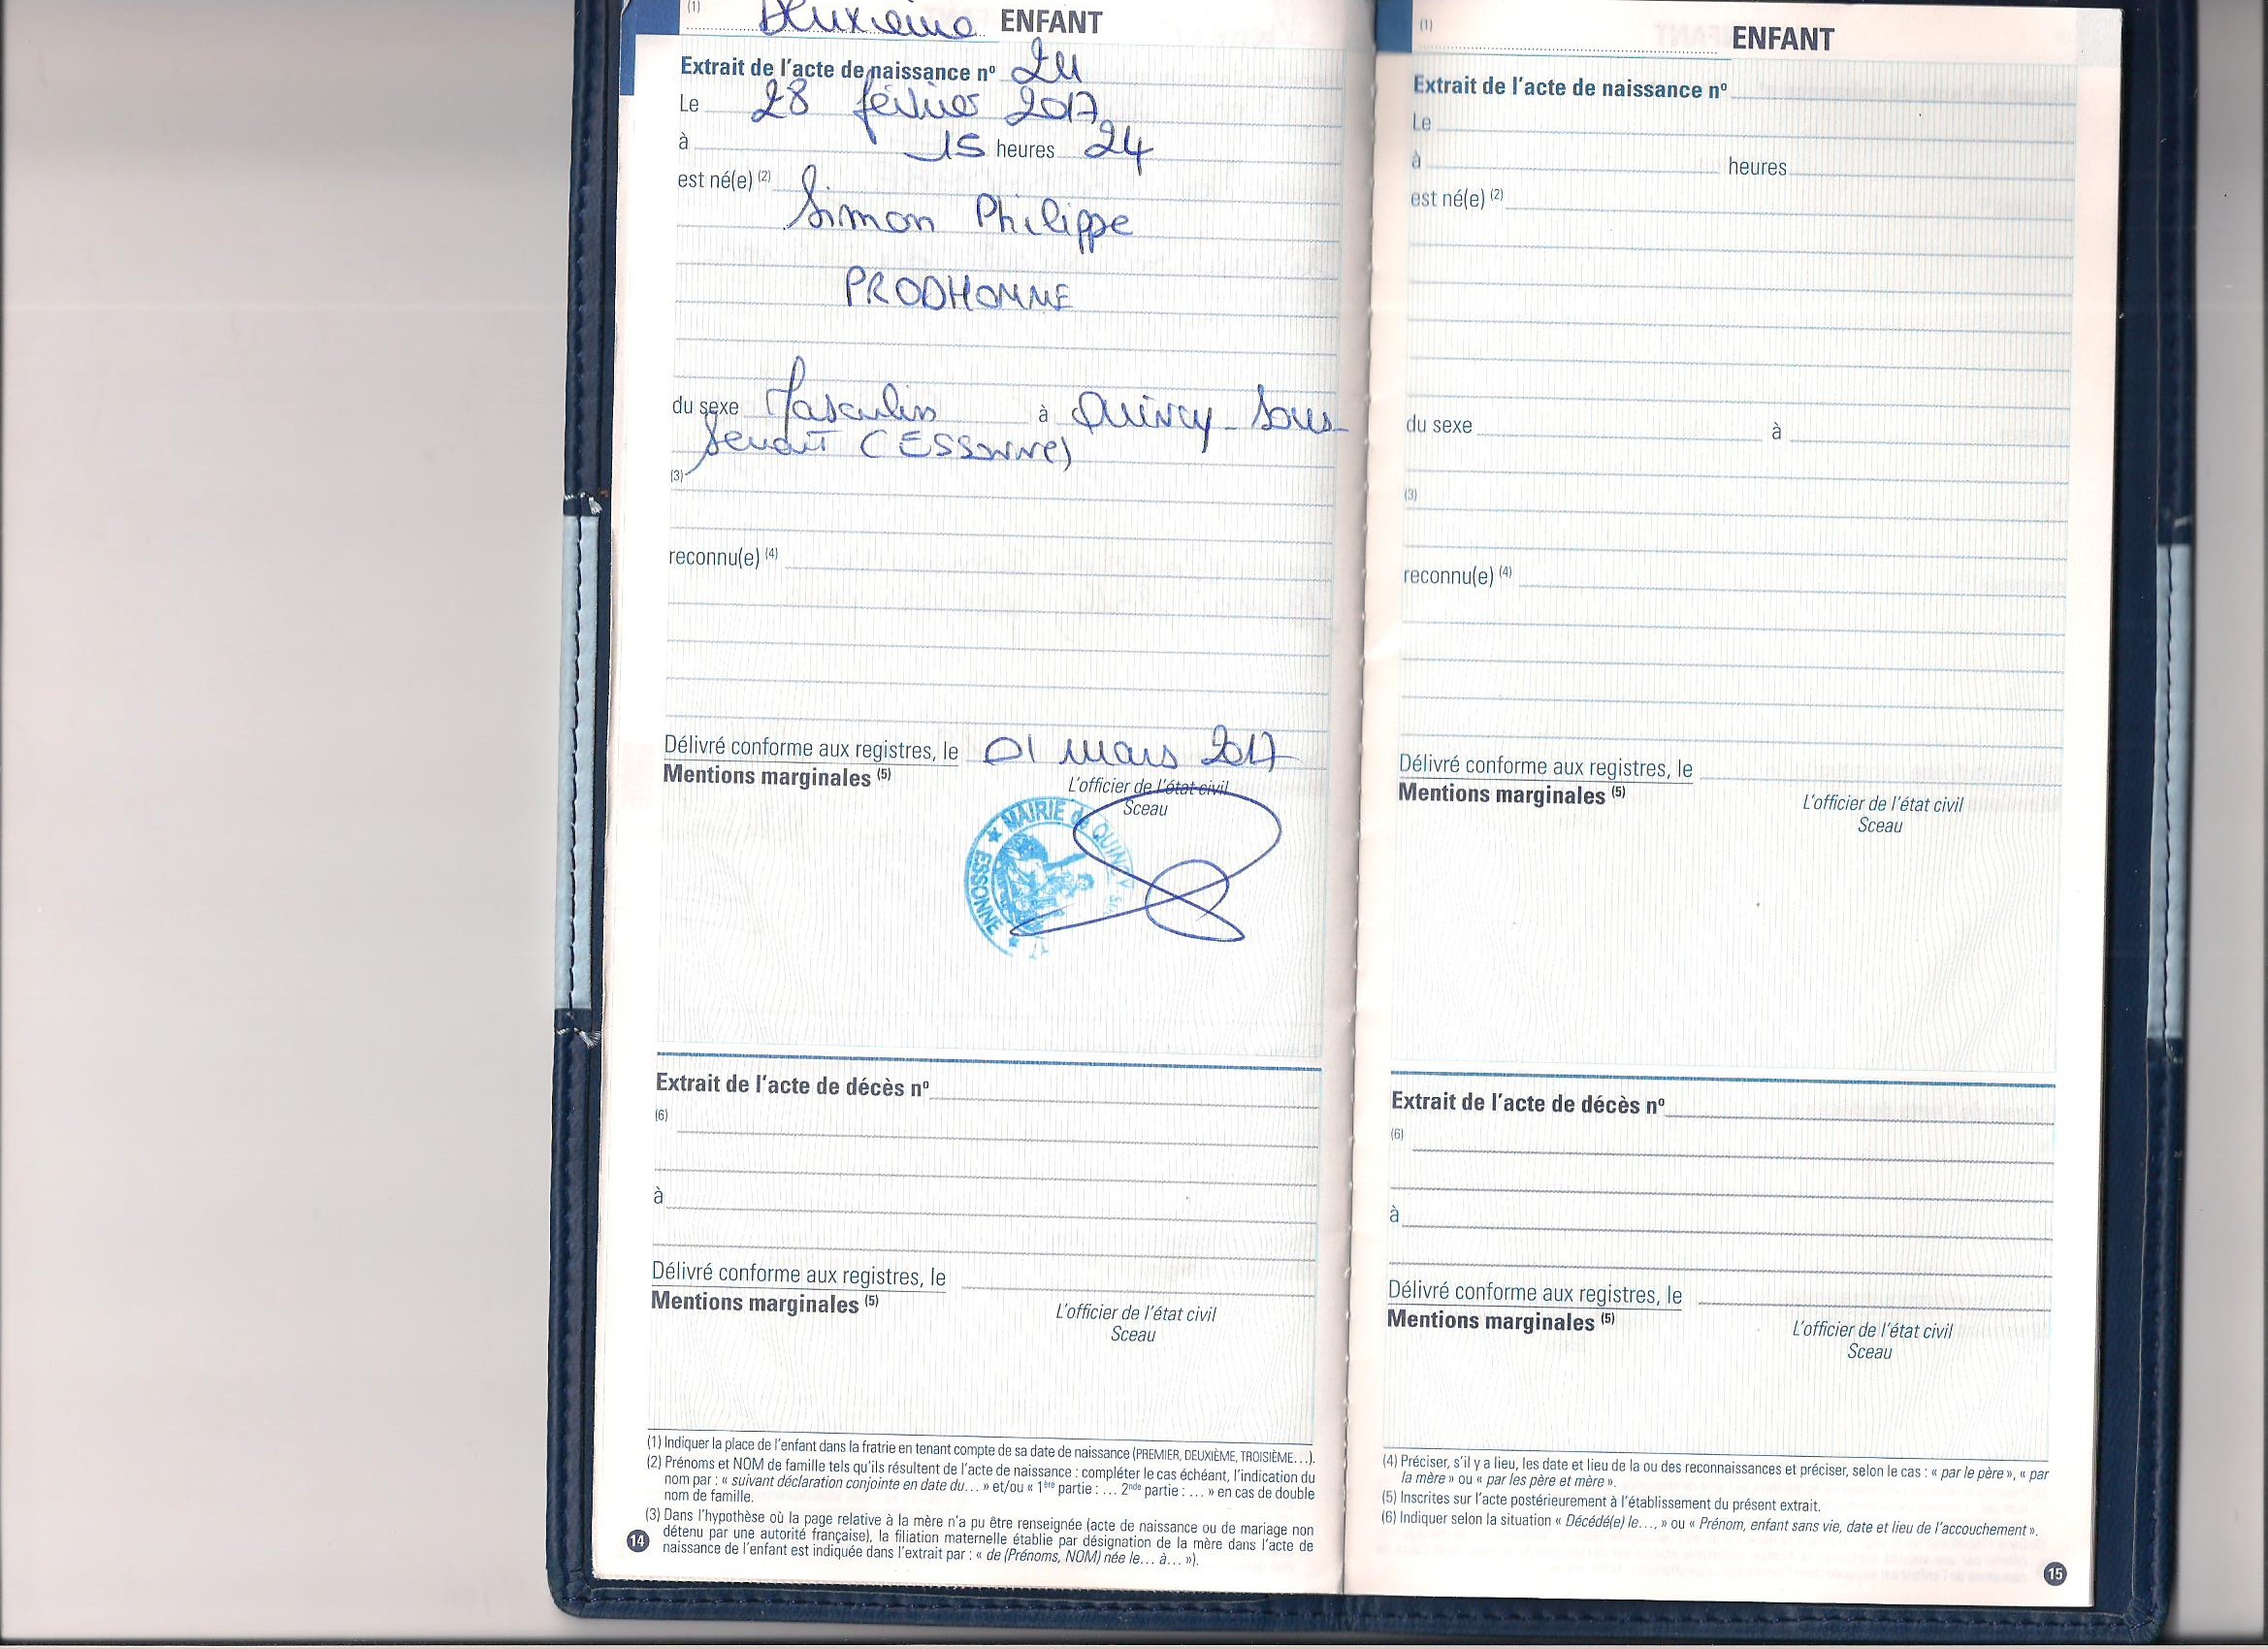 (1) Deuxième ENFANT
Extrait de l'acte de naissance nº 24
Le 28 février 2017
à 15 heures 24
est né(e) (2) Simon Philippe
PRODHOMME
du sexe Masculin à Quincy-Sous-
Senart (ESSONNe)
(3)
reconnu(e) (4)
Délivré conforme aux registres, le 01 mars 2017
Mentions marginales (5)
L'officier de l'état civil
Sceau
★ MAIRIE de QUINCY
ESSONNE ★
Extrait de l'acte de décès nº
(6)
à
Délivré conforme aux registres, le
Mentions marginales (5)
L'officier de l'état civil
Sceau
(1) Indiquer la place de l'enfant dans la fratrie en tenant compte de sa date de naissance (PREMIER, DEUXIÈME, TROISIÈME…).
(2) Prénoms et NOM de famille tels qu'ils résultent de l'acte de naissance : compléter le cas échéant, l'indication du
nom par : « suivant déclaration conjointe en date du… » et/ou « 1ère partie : … 2nde partie : … » en cas de double
nom de famille.
(3) Dans l'hypothèse où la page relative à la mère n'a pu être renseignée (acte de naissance ou de mariage non
détenu par une autorité française), la filiation maternelle établie par désignation de la mère dans l'acte de
naissance de l'enfant est indiquée dans l'extrait par : « de (Prénoms, NOM) née le… à… »).
14
(1) ENFANT
Extrait de l'acte de naissance nº
Le
à heures
est né(e) (2)
du sexe à
(3)
reconnu(e) (4)
Délivré conforme aux registres, le
Mentions marginales (5)
L'officier de l'état civil
Sceau
Extrait de l'acte de décès nº
(6)
à
Délivré conforme aux registres, le
Mentions marginales (5)
L'officier de l'état civil
Sceau
(4) Préciser, s'il y a lieu, les date et lieu de la ou des reconnaissances et préciser, selon le cas : « par le père », « par
la mère » ou « par les père et mère ».
(5) Inscrites sur l'acte postérieurement à l'établissement du présent extrait.
(6) Indiquer selon la situation « Décédé(e) le…, » ou « Prénom, enfant sans vie, date et lieu de l'accouchement ».
15